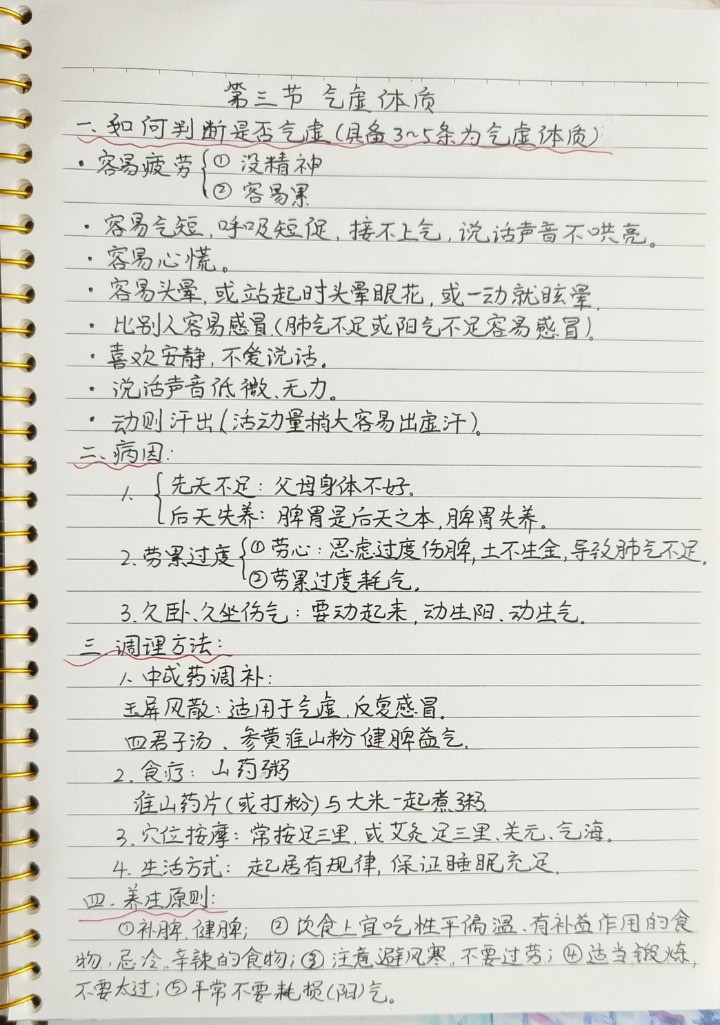 第三节 气虚体质
一、如何判断是否气虚(具备3~5条为气虚体质)
·容易疲劳{①没精神
②容易累
·容易气短,呼吸短促,接不上气,说话声音不哄亮。
·容易心慌。
·容易头晕,或站起时头晕眼花,或一动就眩晕.
·比别人容易感冒(肺气不足或阳气不足容易感冒)。
·喜欢安静,不爱说话。
·说话声音低微、无力。
·动则汗出(活动量稍大容易出虚汗)。
二、病因:
1、{先天不足:父母身体不好.
后天失养:脾胃是后天之本,脾胃失养。
2.劳累过度{①劳心:思虑过度伤脾,土不生金,导致肺气不足.
②劳累过度耗气.
3.久卧、久坐伤气:要动起来,动生阳、动生气。
三、调理方法:
1、中成药调补:
玉屏风散:适用于气虚、反复感冒.
四君子汤、参黄淮山粉健脾益气.
2.食疗:山药粥
淮山药片(或打粉)与大米一起煮粥
3.穴位按摩:常按足三里,或艾灸足三里、关元、气海.
4.生活方式:起居有规律,保证睡眠充足.
四、养生原则:
①补脾、健脾;②饮食上宜吃性平偏温、有补益作用的食
物,忌冷、辛辣的食物;③注意避风寒,不要过劳;④适当锻炼,
不要太过;⑤平常不要耗损(阳)气。